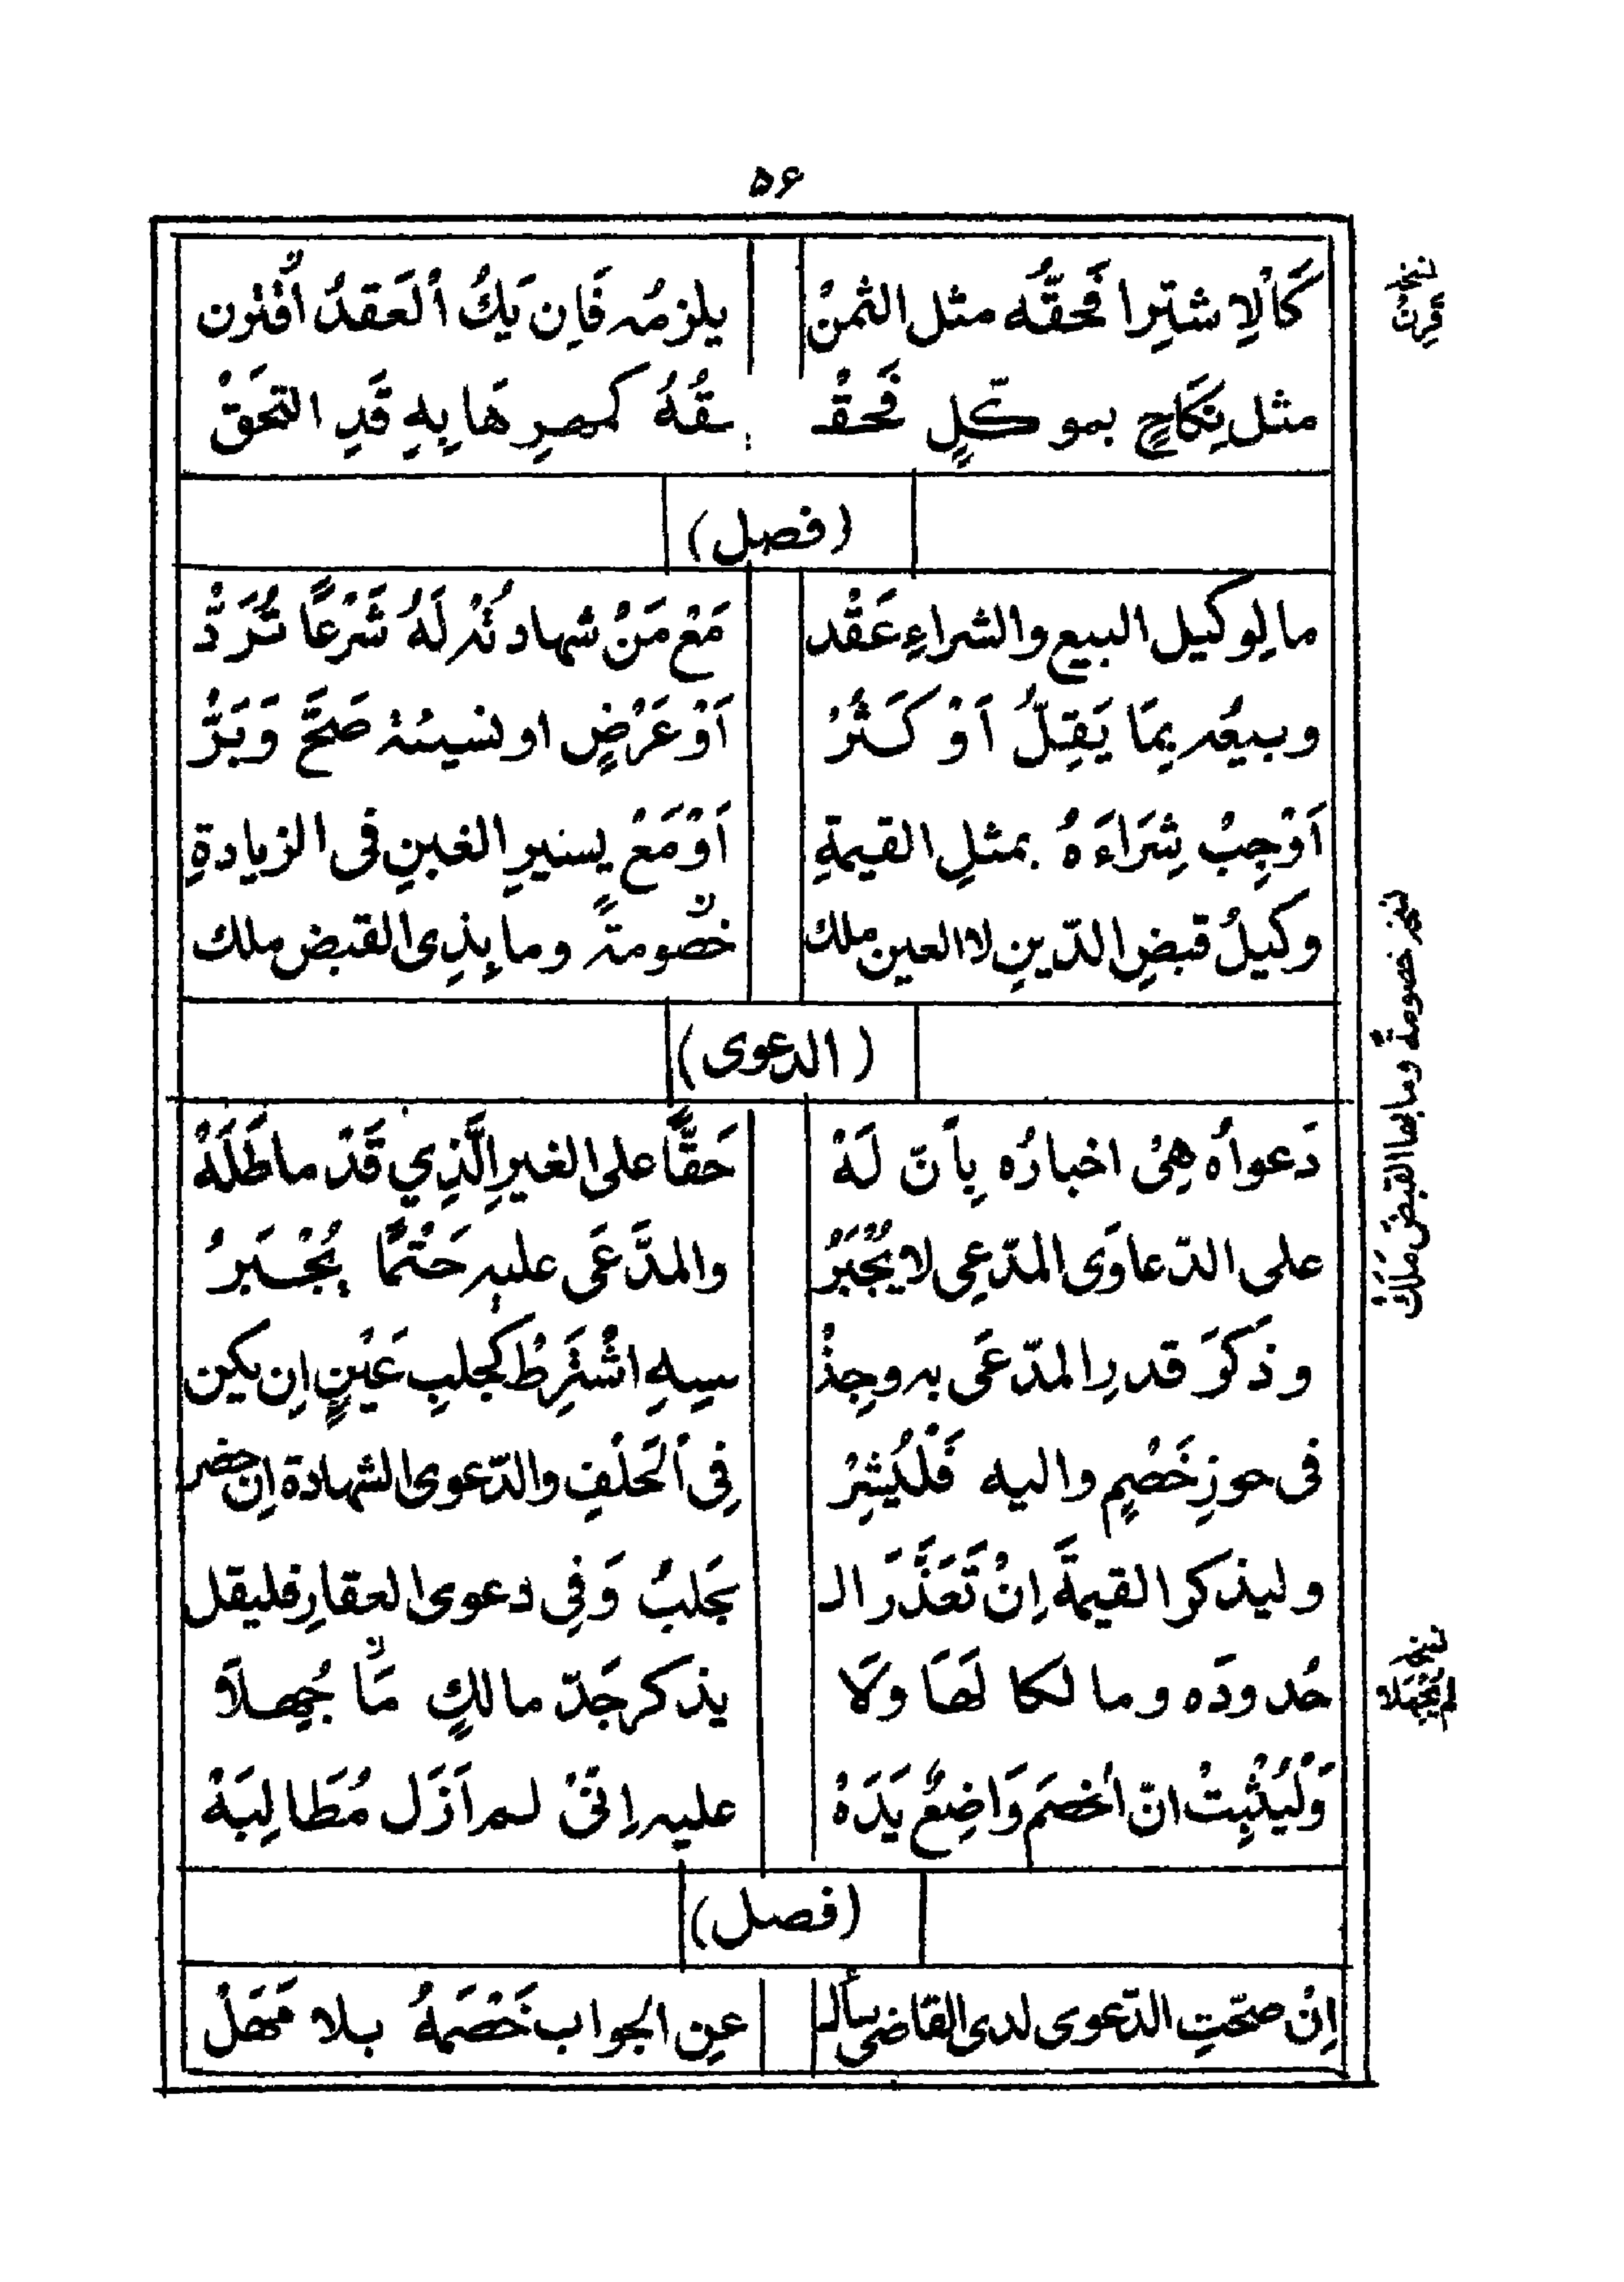 ٥٦
كَاْلاِشتِرا فَحقّه مثل الثمنْ يلزمُه فَاِن يَكُ اْلعَقدُ اُقْترن
مثل نِكَاحٍ بموكّلٍ فَحقْـ ـقُهُ كمهرِهَا بِهِ قَدِ التحَقْ
(فصل)
ما لِوكيل البيع والشراءِ عَقْد مَعْ مَنْ شهادتُه لَهُ شَرْعًا تُرَدّْ
وبيعُه بِمَا يَقِلُّ اَوْ كَثُرْ اَوْ عَرْضٍ او نسيئة صَحَّ وَبَرّْ
اَوْجِبْ شِرَاءَهُ بمثلِ القيمةِ اَوْ مَعْ يسيرِ الغبنِ فى الزيادةِ
وكيلُ قبضِ الدّينِ لا العين ملك خصومةً وما بِذِى القبض ملك
(الدعوى)
دَعواُه هِىْ اخبارُه بِاَنّ لَهْ حَقًّا على الغيرِ الَّذِي قَدْ ماطَلَهْ
على الدّعاوَى المدّعِى لا يُجْبَرُ والمدَّعَى عليهِ حَتْمًا يُجْـبَرُ
وذَكَرَ قدرِ المدّعَى به وجِنْـ ـسِهِ اشْتَرِطْ كجلبِ عَيْنٍ اِن يكن
فى حوزِ خَصْمٍ واليه فَلْيُشِرْ فِى اْلحَلْفِ والدّعوى الشهادة اِن حضر
وليذكر القيمةَ اِنْ تَعَذَّرَ الـ ـجَلبُ وَفِى دعوى العقارِ فليقل
حُدودَه ومالكا لَهَا ولَا يذكر جَدّ مالكٍ مَا جُهِـلَا
وَلْيُثْبِتْ انّ اْلخصَم وَاضِعٌ يَدَهْ عليه اِنّىْ لم اَزَل مُطَالِبَهْ
(فصل)
اِنْ صحّتِ الدّعوى لدى القاضى سأل عنِ الجواب خَصْمَهُ بلا مَهَلْ
نخـ قرنْ
نخـ خصومةً وما بها القبضَ مَلَكْ